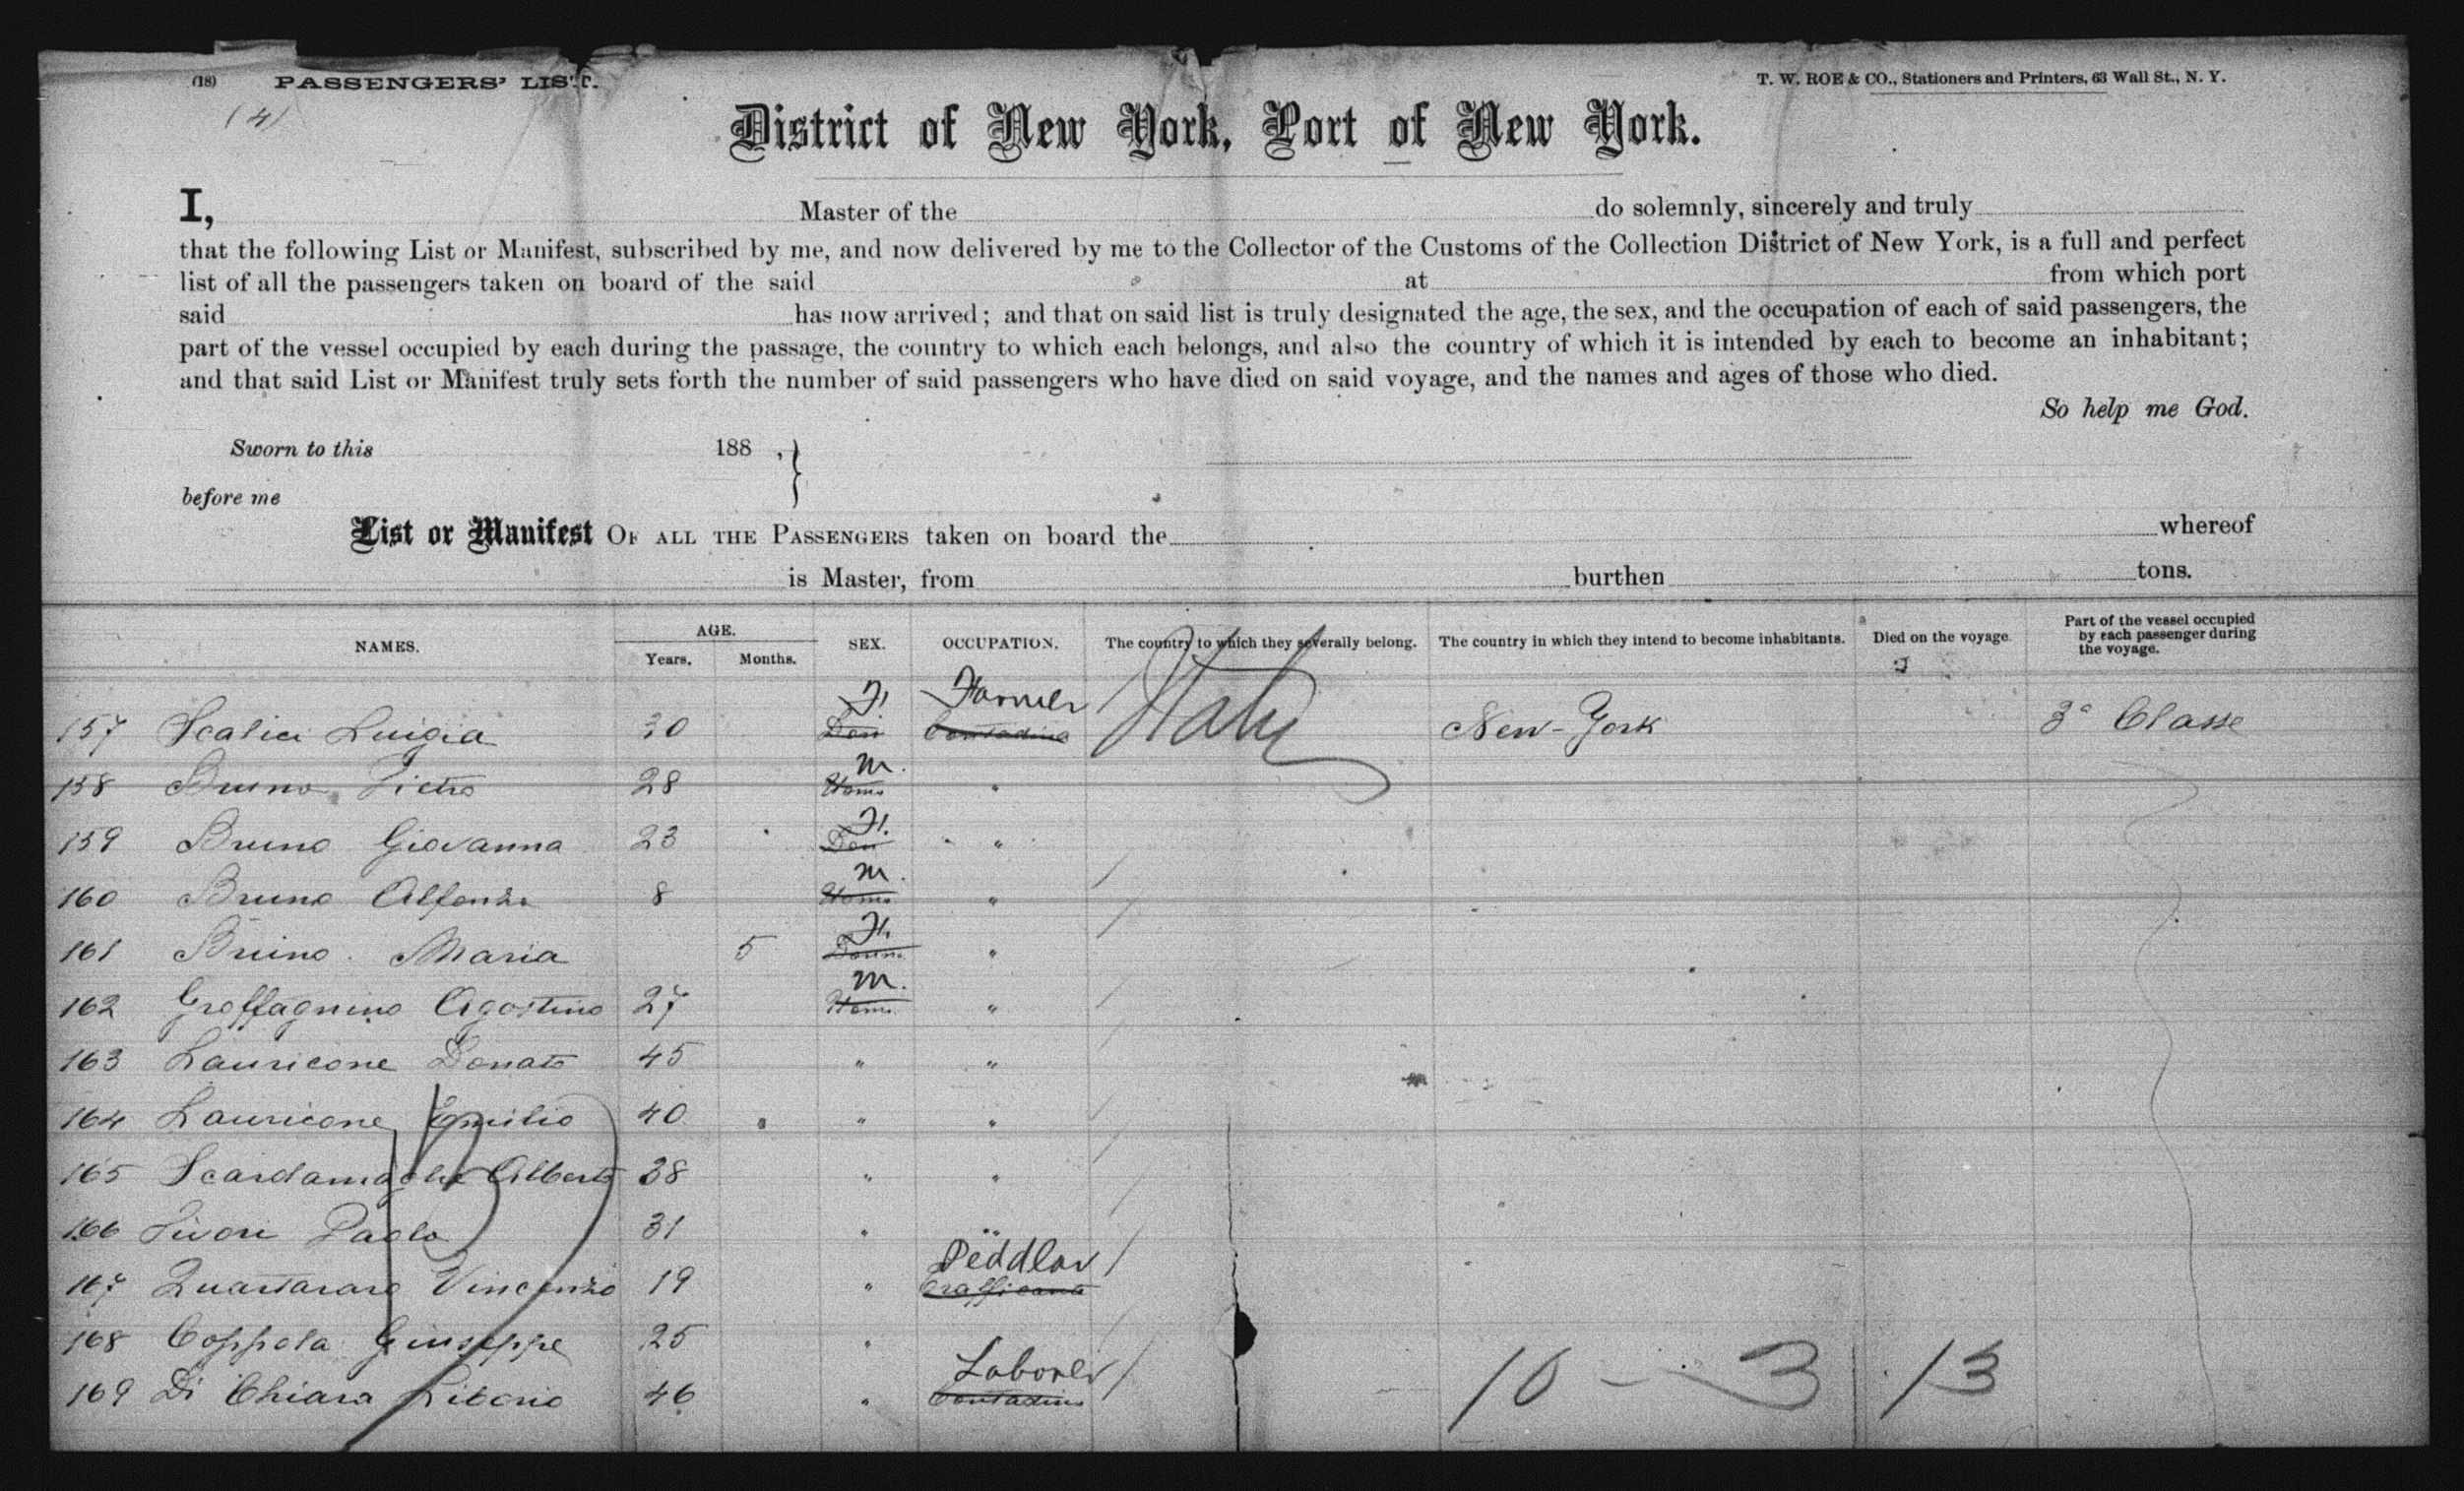 (18) PASSENGERS' LIST. T. W. ROE & CO., Stationers and Printers, 63 Wall St., N. Y.
(4)
District of New York, Port of New York.
I, Master of the do solemnly, sincerely and truly
that the following List or Manifest, subscribed by me, and now delivered by me to the Collector of the Customs of the Collection District of New York, is a full and perfect
list of all the passengers taken on board of the said at from which port
said has now arrived; and that on said list is truly designated the age, the sex, and the occupation of each of said passengers, the
part of the vessel occupied by each during the passage, the country to which each belongs, and also the country of which it is intended by each to become an inhabitant;
and that said List or Manifest truly sets forth the number of said passengers who have died on said voyage, and the names and ages of those who died.
So help me God.
Sworn to this 188 , }
before me
List or Manifest OF ALL THE PASSENGERS taken on board the whereof
is Master, from burthen tons.
NAMES. AGE. Years. Months. SEX. OCCUPATION. The country to which they severally belong. The country in which they intend to become inhabitants. Died on the voyage. Part of the vessel occupied by each passenger during the voyage.
157 Scalici Luigia 30 F. Don Farmer Contadina Italy New-York 3a Classe
158 Bruno Pietro 28 M. Uomo "
159 Bruno Giovanna 23 F. Don "
160 Bruno Alfonso 8 M. Uomo "
161 Bruno Maria 5 F. Donna "
162 Graffagnino Agostino 27 M. Uomo "
163 Lauricone Donato 45 " "
164 Lauricone Emilio 40 " "
165 Alberto 38 " "
166 Paolo 31 " "
167 Quartararo Vincenzo 19 " Peddlar Trafficante
168 Coppola Giuseppe 25 "
169 Di Chiara Liborio 46 " Laborer Contadino
10 - 3 13